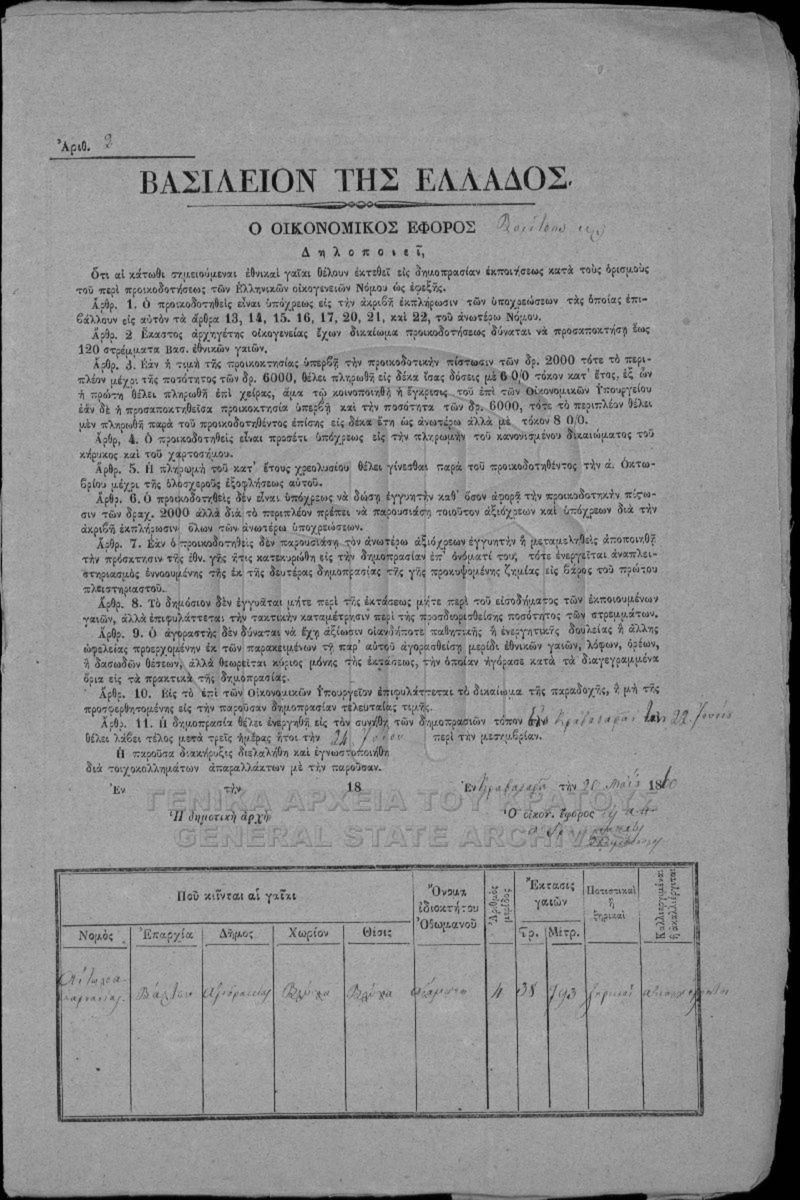 Ἀριθ. 2
ΒΑΣΙΛΕΙΟΝ ΤΗΣ ΕΛΛΑΔΟΣ.
Ο ΟΙΚΟΝΟΜΙΚΟΣ ΕΦΟΡΟΣ
Δηλοποιεῖ,
Ὅτι αἱ κάτωθι σημειούμεναι ἐθνικαὶ γαῖαι θέλουν ἐκτεθεῖ εἰς δημοπρασίαν ἐκποιήσεως κατὰ τοὺς ὁρισμοὺς
τοῦ περὶ προικοδοτήσεως τῶν Ἑλληνικῶν οἰκογενειῶν Νόμου ὡς ἐφεξῆς.
Ἄρθρ. 1. Ὁ προικοδοτηθεὶς εἶναι ὑπόχρεως εἰς τὴν ἀκριβῆ ἐκπλήρωσιν τῶν ὑποχρεώσεων τὰς ὁποίας ἐπι-
βάλλουν εἰς αὐτὸν τὰ ἄρθρα 13, 14, 15. 16, 17, 20, 21, καὶ 22, τοῦ ἀνωτέρω Νόμου.
Ἄρθρ. 2 Ἕκαστος ἀρχηγέτης οἰκογενείας ἔχων δικαίωμα προικοδοτήσεως δύναται νὰ προσαποκτήσῃ ἕως
120 στρέμματα Βασ. ἐθνικῶν γαιῶν.
Ἄρθρ. 3. Ἐὰν ἡ τιμὴ τῆς προικοκτησίας ὑπερβῇ τὴν προικοδοτικὴν πίστωσιν τῶν δρ. 2000 τότε τὸ περι-
πλέον μέχρι τῆς ποσότητος τῶν δρ. 6000, θέλει πληρωθῆ εἰς δέκα ἴσας δόσεις μὲ 6 0/0 τόκον κατ' ἔτος, ἐξ ὧν
ἡ πρώτη θέλει πληρωθῆ ἐπὶ χεῖρας, ἅμα τῷ κοινοποιηθῇ ἡ ἔγκρισις τοῦ ἐπὶ τῶν Οἰκονομικῶν Ὑπουργείου
ἐὰν δὲ ἡ προσαποκτηθεῖσα προικοκτησία ὑπερβῇ καὶ τὴν ποσότητα τῶν δρ. 6000, τότε τὸ περιπλέον θέλει
μὲν πληρωθῆ παρὰ τοῦ προικοδοτηθέντος ἐπίσης εἰς δέκα ἔτη ὡς ἀνωτέρω ἀλλὰ μὲ τόκον 8 0/0.
Ἄρθρ, 4. Ὁ προικοδοτηθεὶς εἶναι προσέτι ὑπόχρεως εἰς τὴν πληρωμὴν τοῦ κανονισμένου δικαιώματος τοῦ
κήρυκος καὶ τοῦ χαρτοσήμου.
Ἄρθρ. 5. Ἡ πληρωμὴ τοῦ κατ' ἔτους χρεολυσίου θέλει γίνεσθαι παρὰ τοῦ προικοδοτηθέντος τὴν ά. Ὀκτω-
βρίου μέχρι τῆς ὁλοσχεροῦς ἐξοφλήσεως αὐτοῦ.
Ἄρθρ. 6. Ὁ προικοδοτηθεὶς δὲν εἶναι ὑπόχρεως νὰ δώσῃ ἐγγυητὴν καθ' ὅσον ἀφορᾷ τὴν προικοδοτικὴν πίστω-
σιν τῶν δραχ. 2000 ἀλλὰ διὰ τὸ περιπλέον πρέπει νὰ παρουσιάσῃ τοιοῦτον ἀξιόχρεων καὶ ὑπόχρεων διὰ τὴν
ἀκριβῆ ἐκπλήρωσιν ὅλων τῶν ἀνωτέρω ὑποχρεώσεων.
Ἄρθρ. 7. Ἐὰν ὁ προικοδοτηθεὶς δὲν παρουσιάσῃ τὸν ἀνωτέρω ἀξιόχρεων ἐγγυητὴν ἢ μεταμεληθεὶς ἀποποιηθῇ
τὴν πρόσκτησιν τῆς ἐθν. γῆς ἥτις κατεκυρώθη εἰς τὴν δημοπρασίαν ἐπ' ὀνόματί του, τότε ἐνεργεῖται ἀναπλει-
στηριασμὸς ἐννοουμένης τῆς ἐκ τῆς δευτέρας δημοπρασίας τῆς γῆς προκυψομένης ζημίας εἰς βάρος τοῦ πρώτου
πλειστηριαστοῦ.
Ἄρθρ. 8. Τὸ δημόσιον δὲν ἐγγυᾶται μήτε περὶ τῆς ἐκτάσεως μήτε περὶ τοῦ εἰσοδήματος τῶν ἐκποιουμένων
γαιῶν, ἀλλὰ ἐπιφυλάττεται τὴν τακτικὴν καταμέτρησιν περὶ τῆς προσδιορισθείσης ποσότητος τῶν στρεμμάτων.
Ἄρθρ. 9. Ὁ ἀγοραστὴς δὲν δύναται νὰ ἔχῃ ἀξίωσιν οἱανδήποτε παθητικῆς ἢ ἐνεργητικῆς δουλείας ἢ ἄλλης
ὠφελείας προερχομένην ἐκ τῶν παρακειμένων τῇ παρ' αὐτοῦ ἀγορασθείσῃ μερίδι ἐθνικῶν γαιῶν, λόφων, ὀρέων,
ἢ δασωδῶν θέσεων, ἀλλὰ θεωρεῖται κύριος μόνης τῆς ἐκτάσεως, τὴν ὁποίαν ἠγόρασε κατὰ τὰ διαγεγραμμένα
ὅρια εἰς τὰ πρακτικὰ τῆς δημοπρασίας.
Ἄρθρ. 10. Εἰς τὸ ἐπὶ τῶν Οἰκονομικῶν Ὑπουργεῖον ἐπιφυλάττεται τὸ δικαίωμα τῆς παραδοχῆς, ἢ μὴ τῆς
προσφερθησομένης εἰς τὴν παροῦσαν δημοπρασίαν τελευταίας τιμῆς.
Ἄρθρ. 11. Ἡ δημοπρασία θέλει ἐνεργηθῆ εἰς τὸν συνήθη τῶν δημοπρασιῶν τόπον 22
θέλει λάβει τέλος μετὰ τρεῖς ἡμέρας ἤτοι τὴν 24 περὶ τὴν μεσημβρίαν.
Ἡ παροῦσα διακήρυξις διελαλήθη καὶ ἐγνωστοποιήθη
διὰ τοιχοκολλημάτων ἀπαραλλάκτων μὲ τὴν παροῦσαν.
Ἐν τὴν 18 Ἐν τὴν 1860
ΓΕΝΙΚΑ ΑΡΧΕΙΑ ΤΟΥ ΚΡΑΤΟΥΣ
Ἡ δημοτικὴ ἀρχὴ Ὁ οἰκον. ἔφορος
GENERAL STATE ARCHIVES
Ποῦ κεῖνται αἱ γαῖαι Ὄνομα ἰδιοκτήτου Ὀθωμανοῦ Ἀριθμὸς μερίδος Ἔκτασις γαιῶν Ποτιστικαὶ ἢ ξηρικαὶ Καλλιεργημέναι ἢ ἀκαλλιέργηται
Νομὸς Ἐπαρχία Δῆμος Χωρίον Θέσις Στρ. Μέτρ.
Βάλτου 4 38 793 ξηρικαὶ